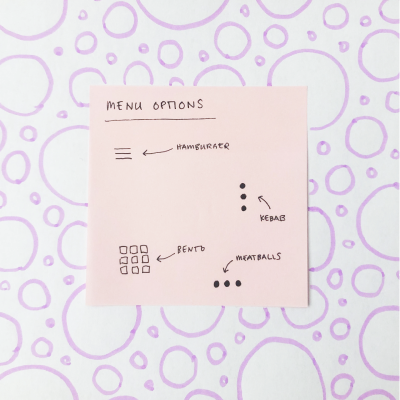 MENU OPTIONS
HAMBURGER
KEBAB
BENTO
MEATBALLS